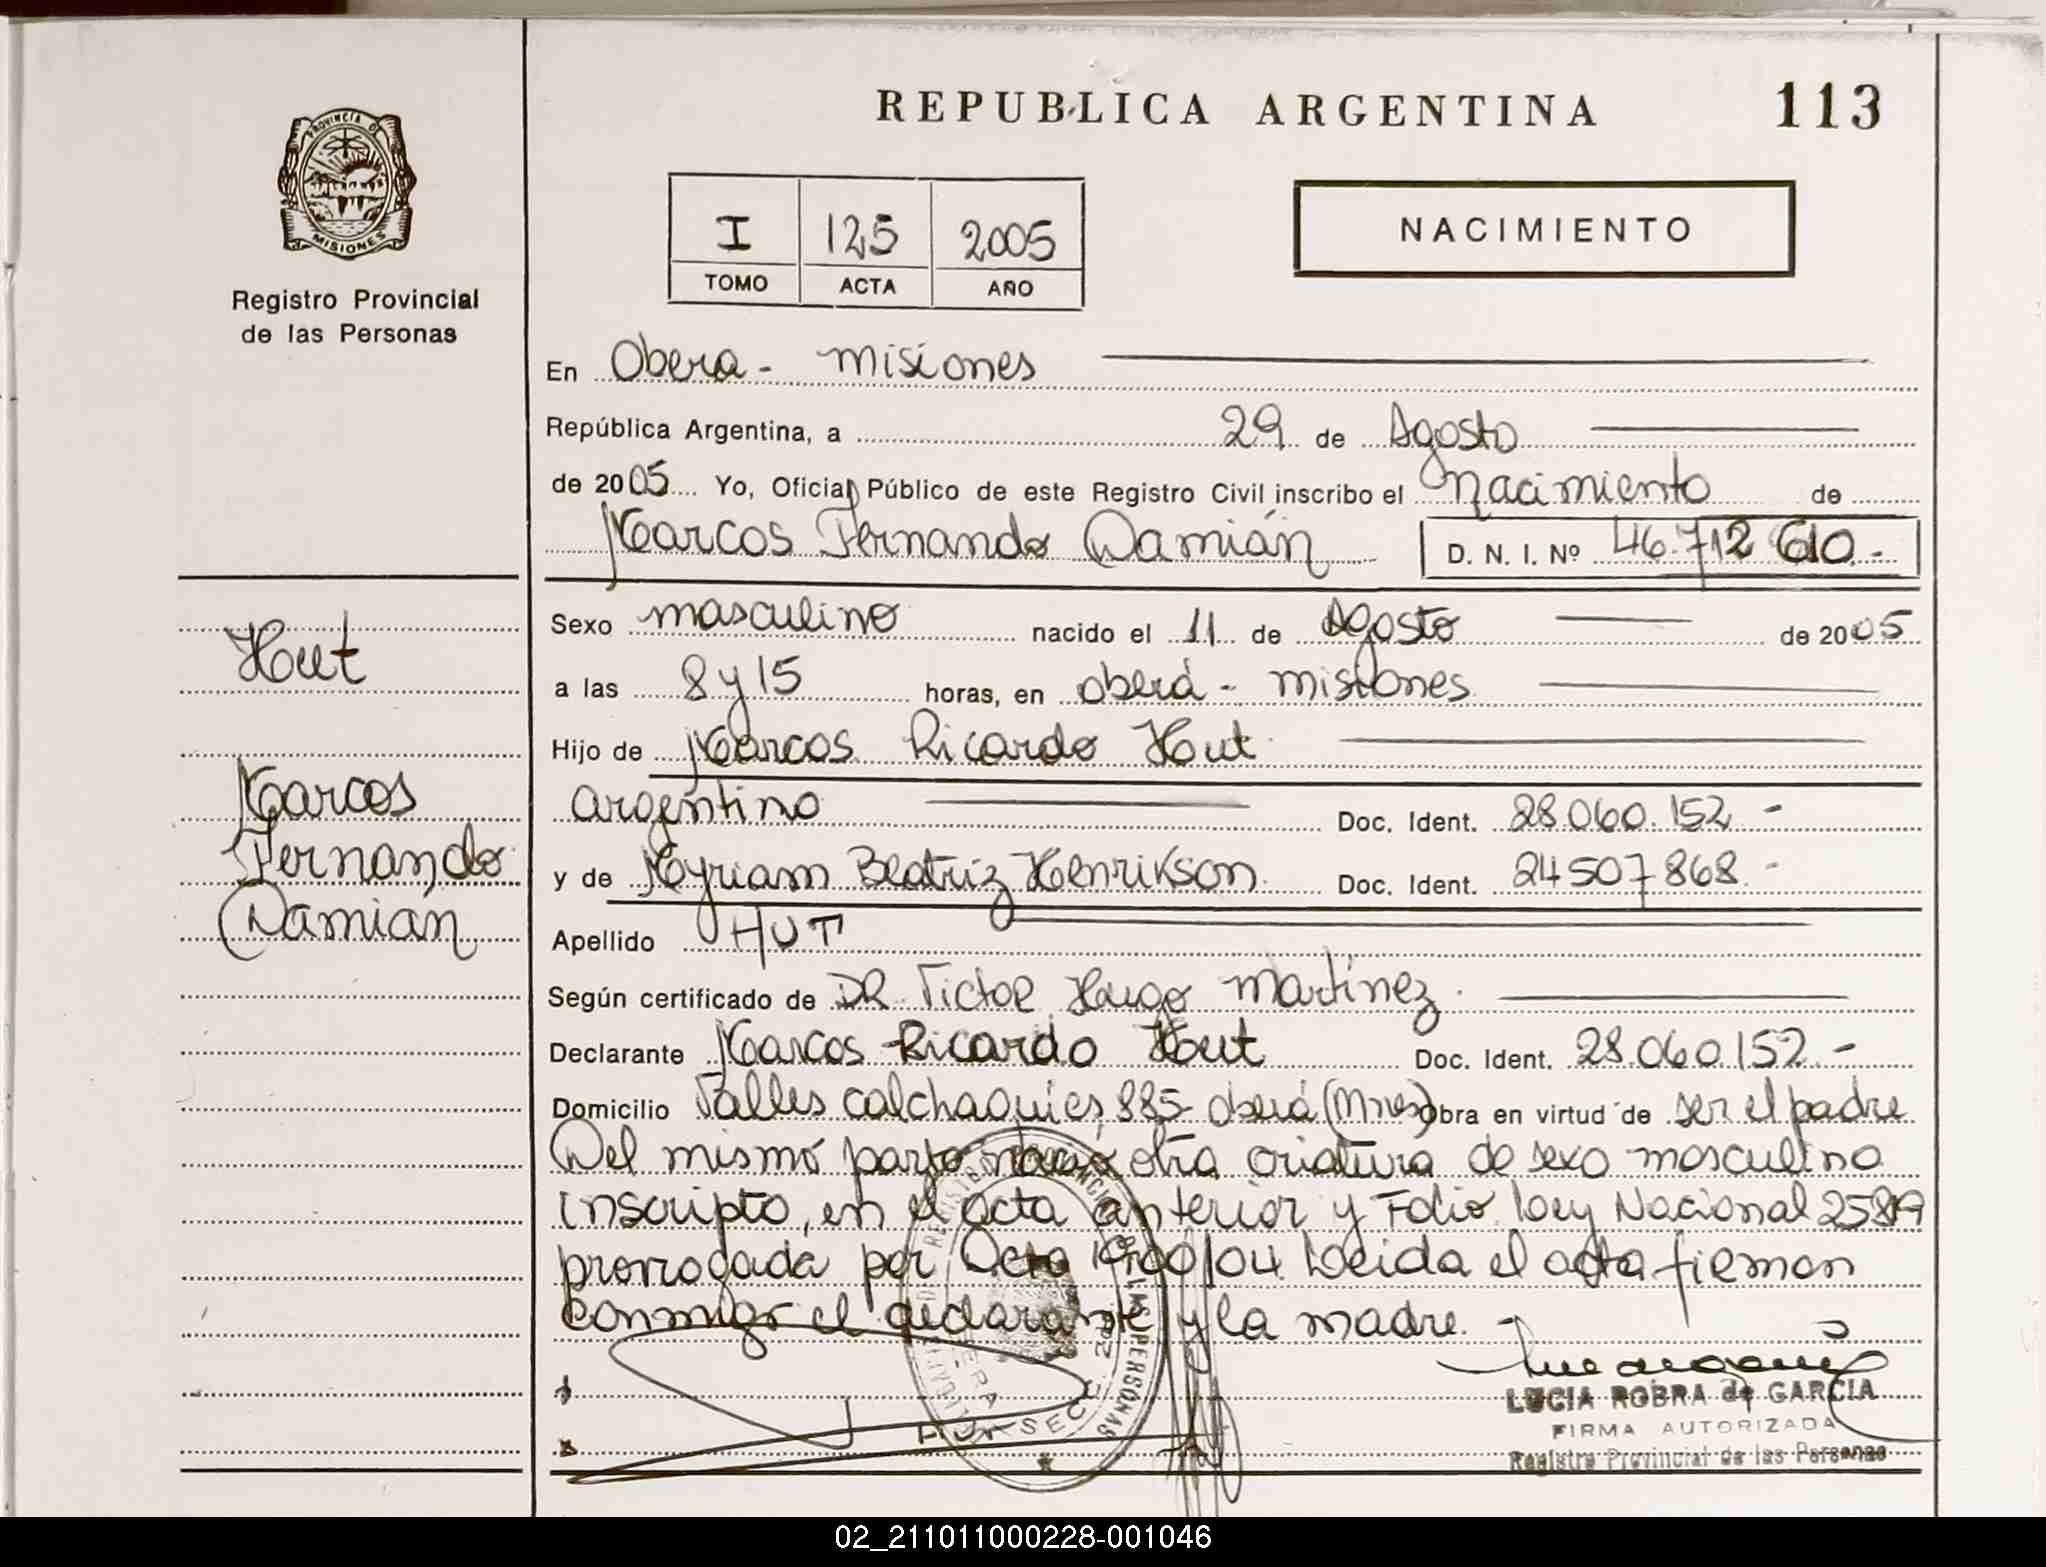 REPUBLICA ARGENTINA
113
PROVINCIA D
MISIONES
Registro Provincial
de las Personas
I 125 2005
TOMO ACTA AÑO
NACIMIENTO
En Obera - Misiones
República Argentina, a 29 de Agosto
de 2005 Yo, Oficial Público de este Registro Civil inscribo el Nacimiento de
Marcos Fernando Damián D. N. I. Nº 46.712 610.-
Hut
Marcos
Fernando
Damián
Sexo masculino nacido el 11 de Agosto de 2005
a las 8 y 15 horas, en Oberá - Misiones
Hijo de Marcos Ricardo Hut
argentino Doc. Ident. 28.060.152 -
y de Myriam Beatriz Henrikson Doc. Ident. 24507868 -
Apellido HUT
Según certificado de DR Victor Hugo Martínez.
Declarante Marcos Ricardo Hut Doc. Ident. 28.060.152.-
Domicilio Valles calchaquies, 885- Oberá (Mnes) obra en virtud de ser el padre
Del mismo parto nació otra criatura de sexo masculino
inscripto, en el acta anterior y Folio. Ley Nacional
prorrogada por Leida el acta firman
conmigo el declarante y la madre. -
LUCIA ROBRA de GARCIA
FIRMA AUTORIZADA
Registro Provincial de las Personas
02_211011000228-001046